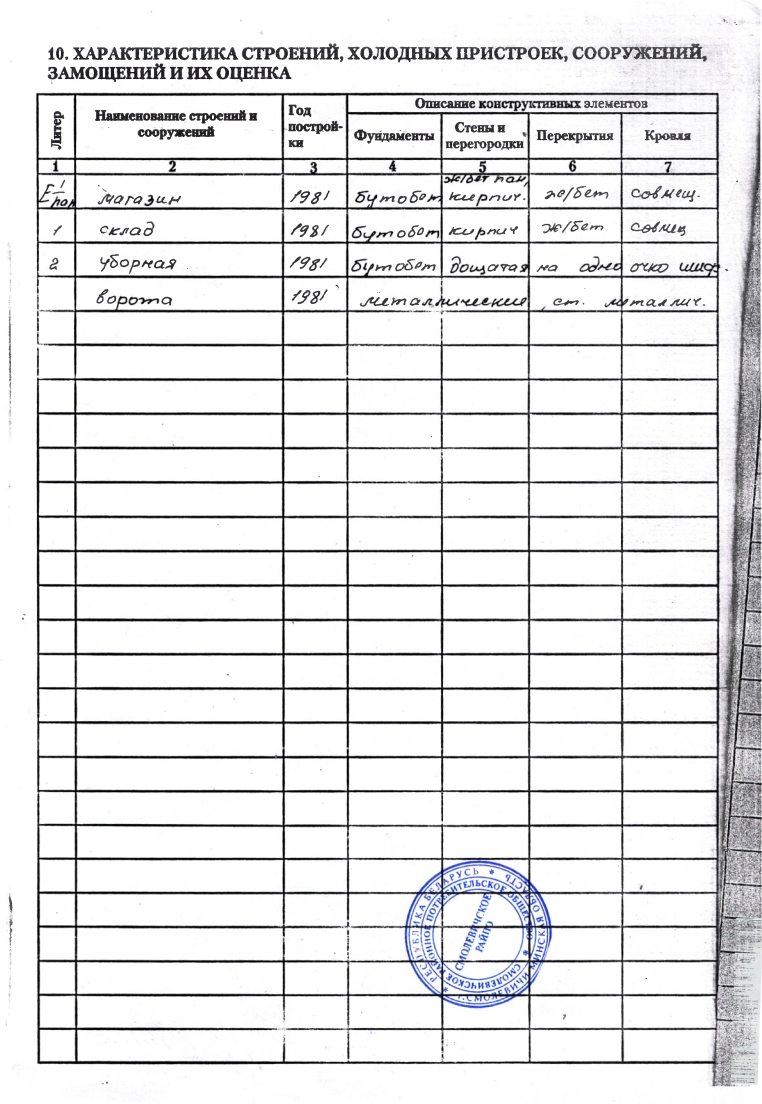 10. ХАРАКТЕРИСТИКА СТРОЕНИЙ, ХОЛОДНЫХ ПРИСТРОЕК, СООРУЖЕНИЙ,
ЗАМОЩЕНИЙ И ИХ ОЦЕНКА
Литер
Наименование строений и
сооружений
Год
построй-
ки
Описание конструктивных элементов
Фундаменты
Стены и
перегородки
Перекрытия
Кровля
1 2 3 4 5 6 7
ж/бет пан,
магазин 1981 бутобет кирпич. ж/бет совмещ.
1 склад 1981 бутобет кирпич ж/бет совмещ
2 уборная 1981 бутобет дощатая на одно очко шиф.
ворота 1981 металлические, ст. металлич.
РЕСПУБЛИКА БЕЛАРУСЬ * МИНСКАЯ ОБЛАСТЬ
* г.СМОЛЕВИЧИ
СМОЛЕВИЧСКОЕ РАЙОННОЕ ПОТРЕБИТЕЛЬСКОЕ ОБЩЕСТВО *
СМОЛЕВИЧСКОЕ
РАЙПО